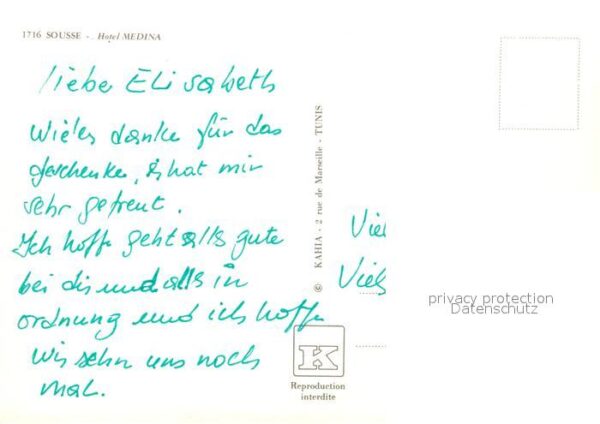 1716 SOUSSE - . Hotel MEDINA
liebe ELisabeth
Wieles danke für das
geschenke, hat mir
sehr gefreut.
Ich hoffe geht alls gute
bei dir und alls in
ordnung und ich hoffe
Wir sehn uns noch
mal.
© KAHIA - 2 rue de Marseille - TUNIS
K
Reproduction
interdite
Viel
Viels
privacy protection
Datenschutz